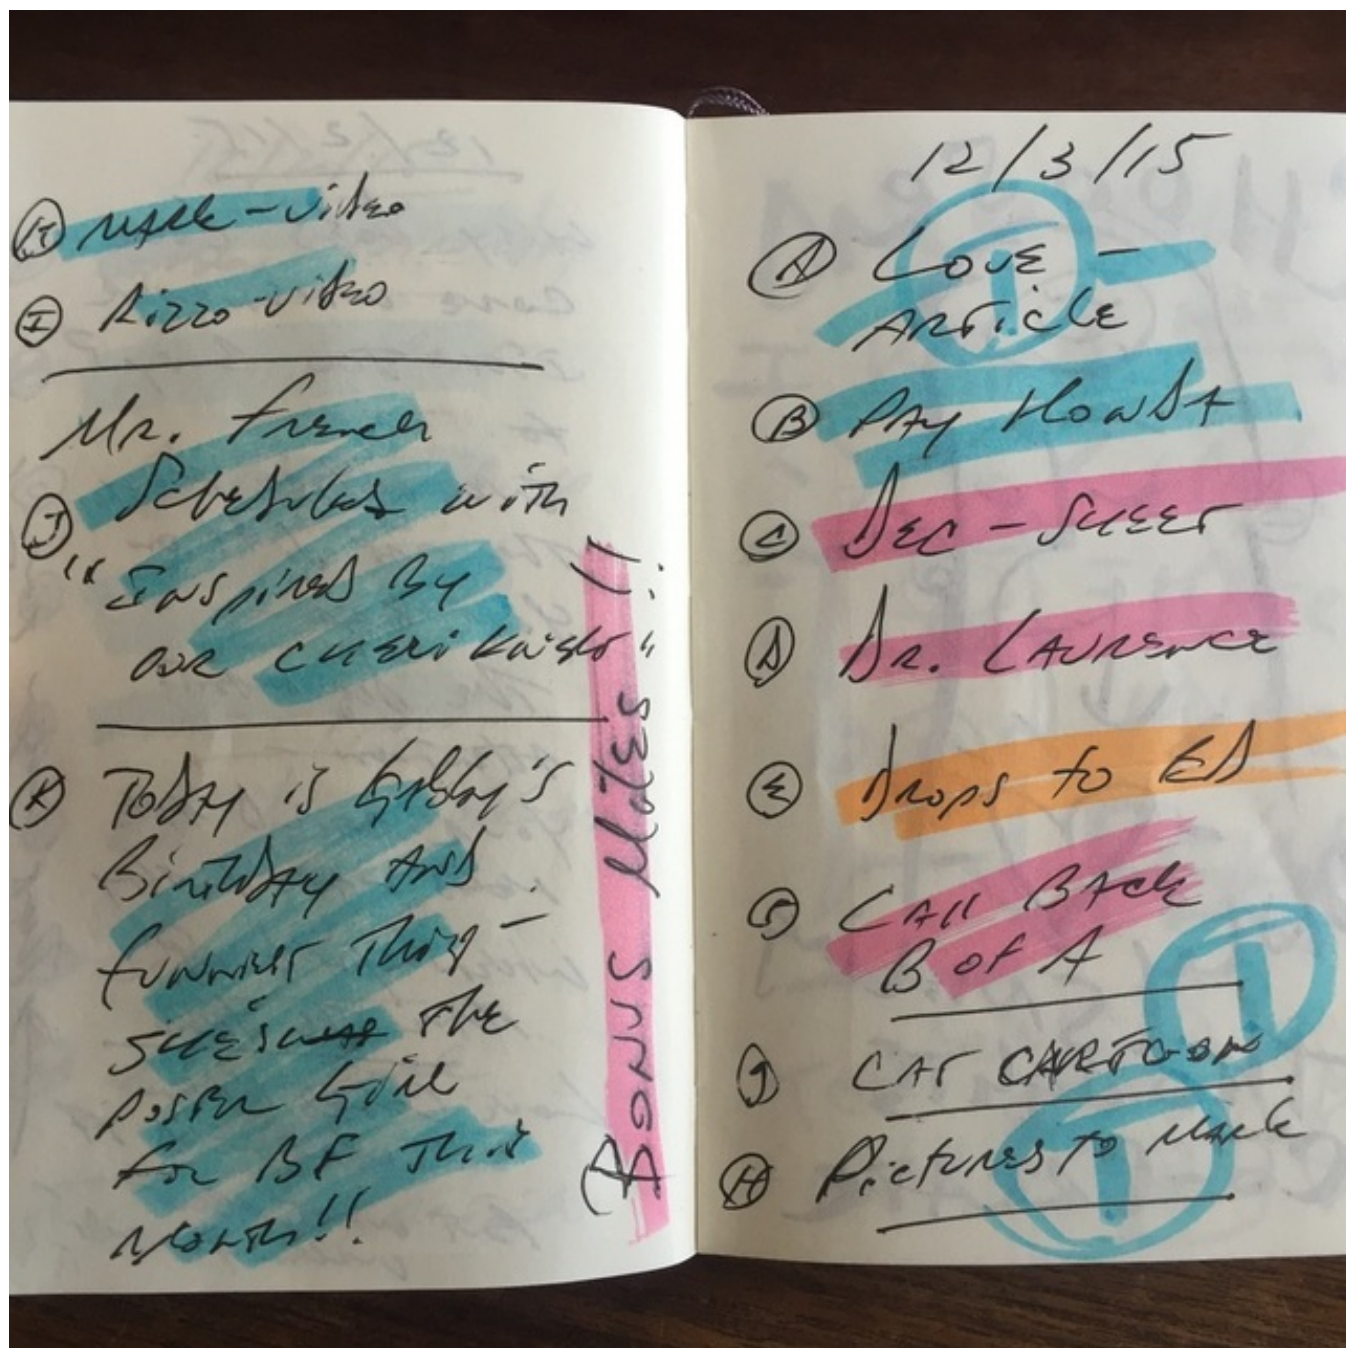 (H) Mark - Video
(I) Rizzo - Video
Mr. French
(J) Schedules with
"Inspired By
our
Bonus Notes!!
(K) Today is Gabby's
Birthday And
funniest Thing -
She's was The
poster Girl
for BF This
Month!!
12/3/15
(A) Love -
Article
T
(B) Pay Honda
(C) Dec - Sheet
(D) Dr. Laurence
(E) Drops to ED
(F) Call Back
B of A
T
(G) Cat Cartoon
(H) Pictures to Mark
T